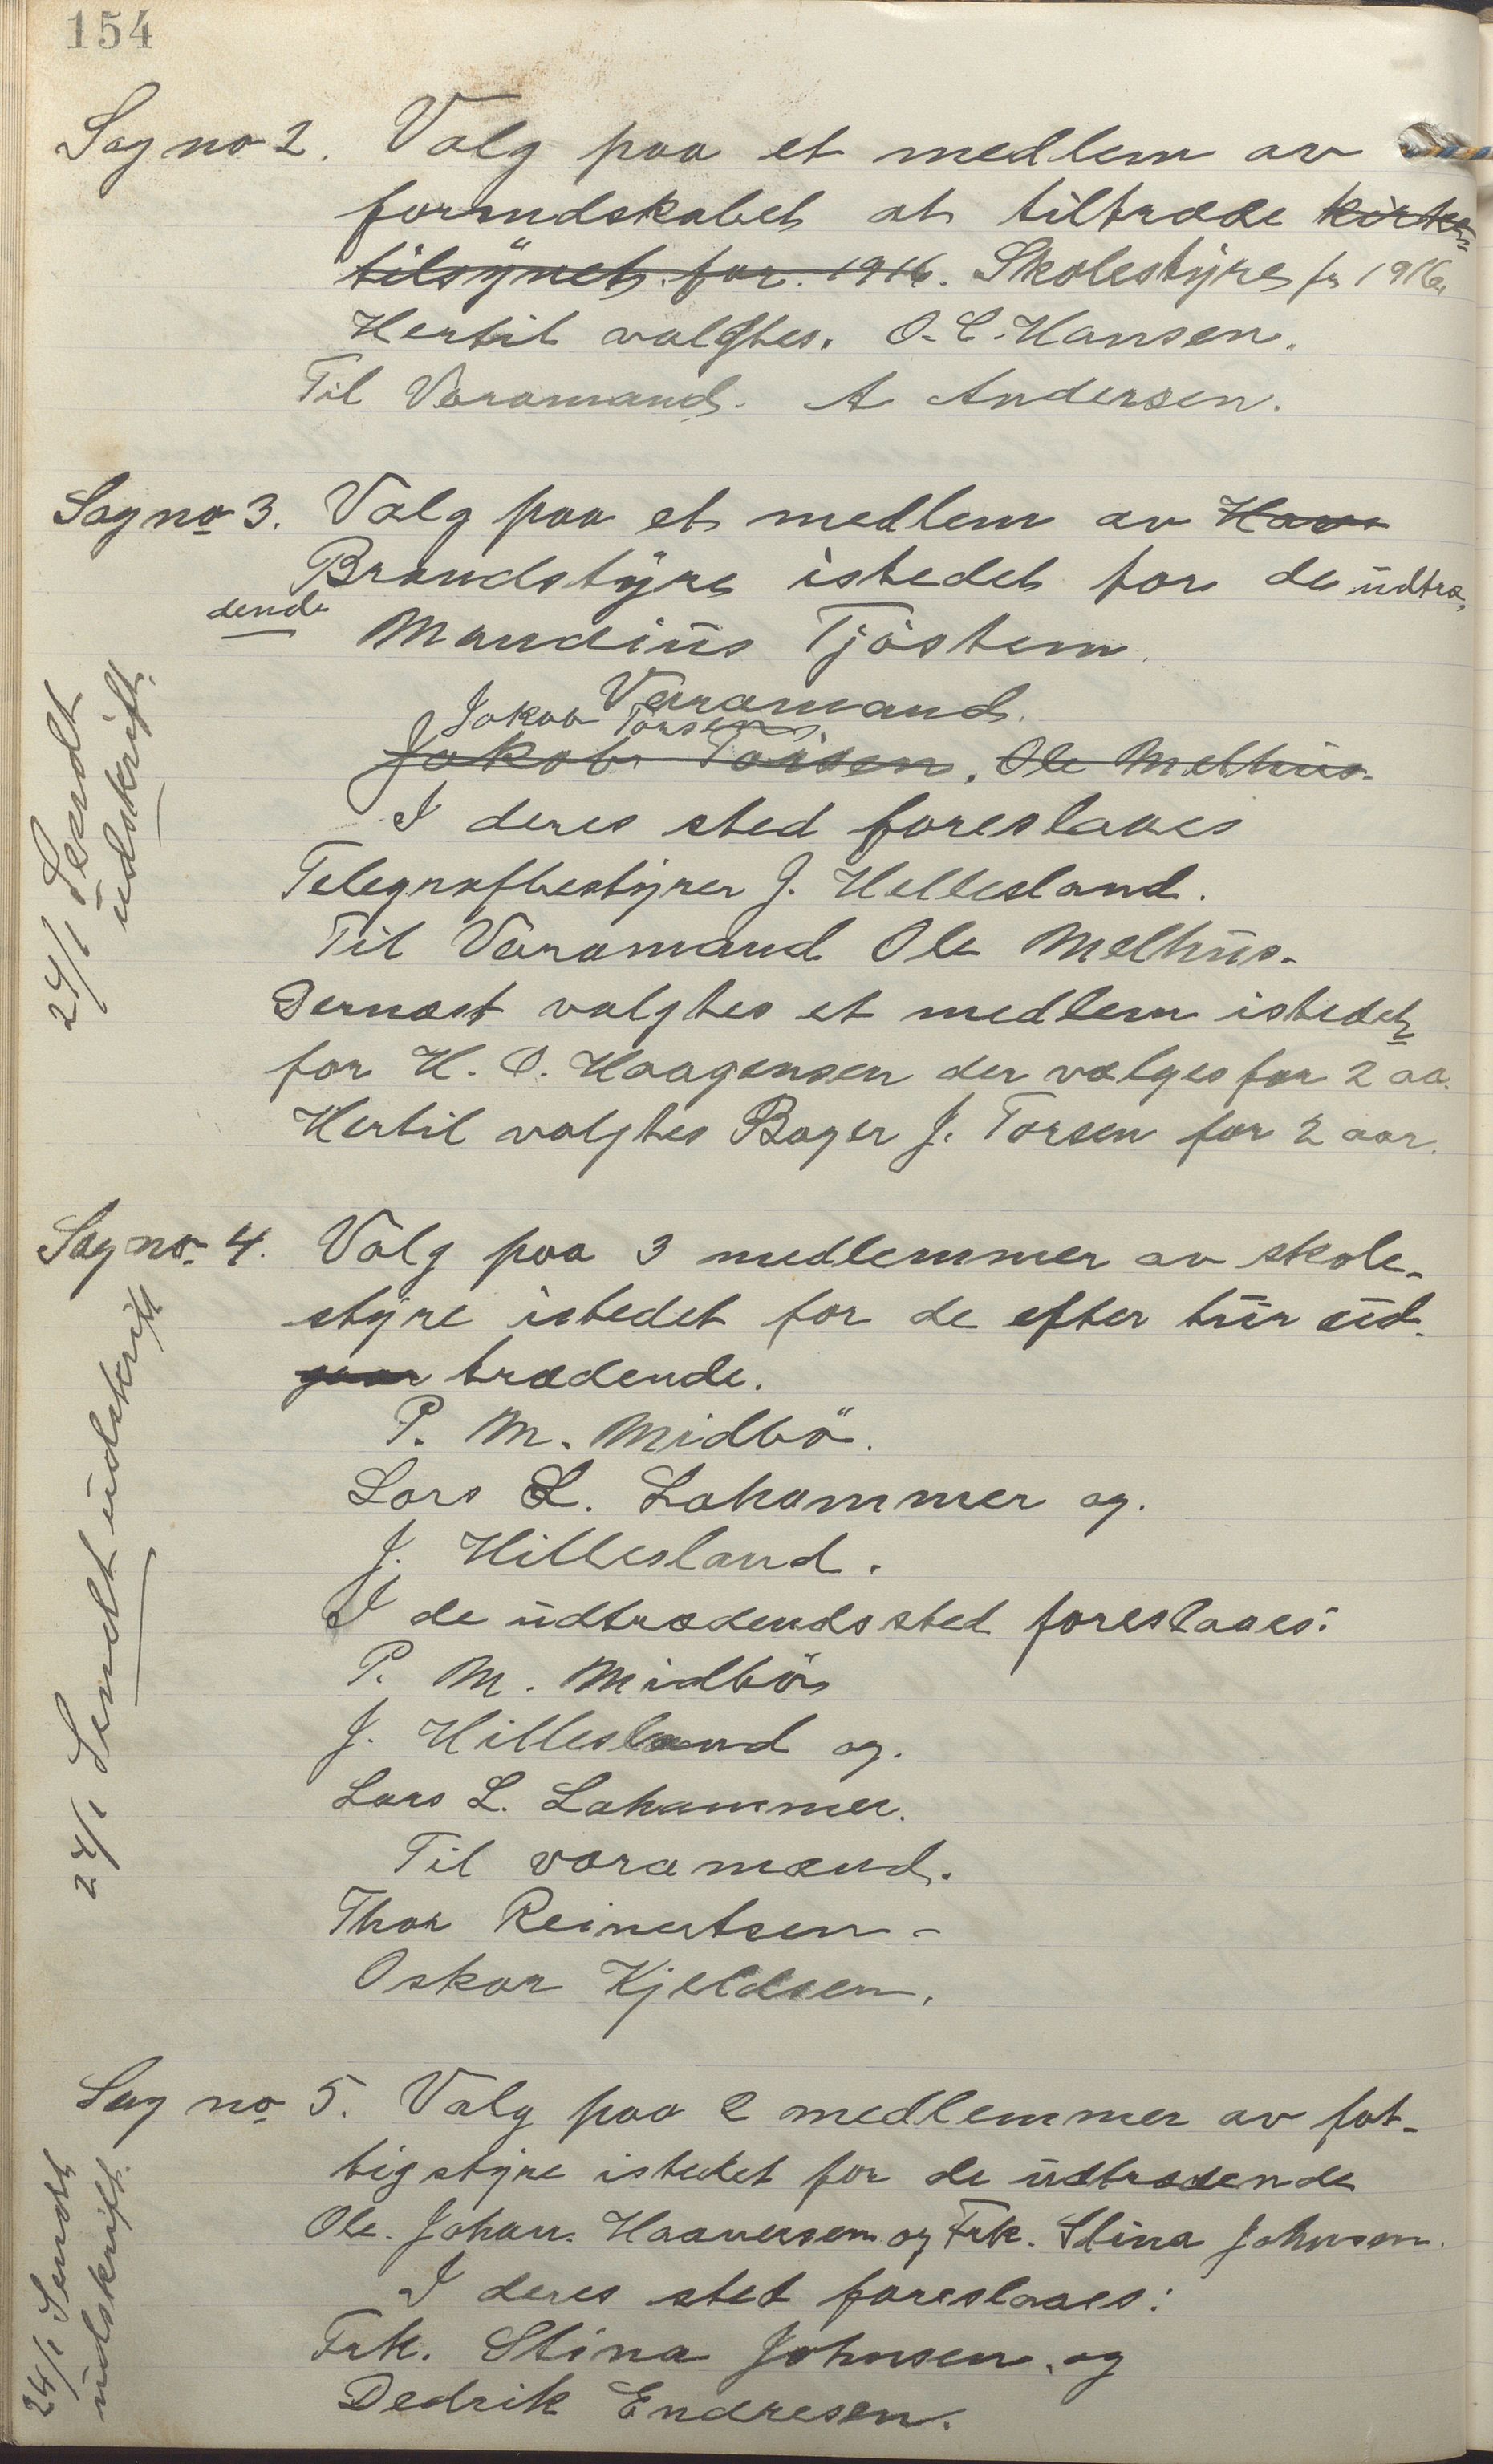 154
Sag no 2. Valg paa et medlem av
formdskabet at tiltræde kirke=
tilsynet for 1916. Skolestyre for 1916.
Hertil valgtes. O. C. Hansen.
Til Varamand. A Andersen.
Sag no 3. Valg paa et medlem av Hav
Brandstyre istedet for de udtræ=
dende Mandius Tjöstem.
Varamand.
Jakob Torsen
Jakob Torsen. Ole Melhus.
I deres sted foreslaaes
Telegrafbestyrer J. Hellesland.
Til Varamand Ole Melhus.
Dernæst valgtes et medlem istedet
for H. O. Haagensen der vælges for 2 aa.
Hertil valgtes Bager J. Torsen for 2 aar.
24/1 Sendt
udskrift.
Sag no. 4. Valg paa 3 medlemmer av skole-
styre istedet for de efter tur ud-
gaar trædende.
P. M. Midbö.
Lars L. Lahammer og.
J. Hillesland.
I de udtrædends sted foreslaaes:
P. M. Midbö
J. Hillesland og.
Lars L. Lahammer.
Til varamænd.
Thor Reinertsen -
Oskar Kjeldsen.
24/1 Sendt udskrift
Sag no 5. Valg paa 2 medlemmer av fat-
tigstyre istedet for de udtrædende
Ole. Johan. Haaversen og Frk. Stina Johnsen.
I deres sted foreslaaes:
Frk. Stina Johnsen. og
Dedrik Endresen.
24/1 Sendt
udskrift.